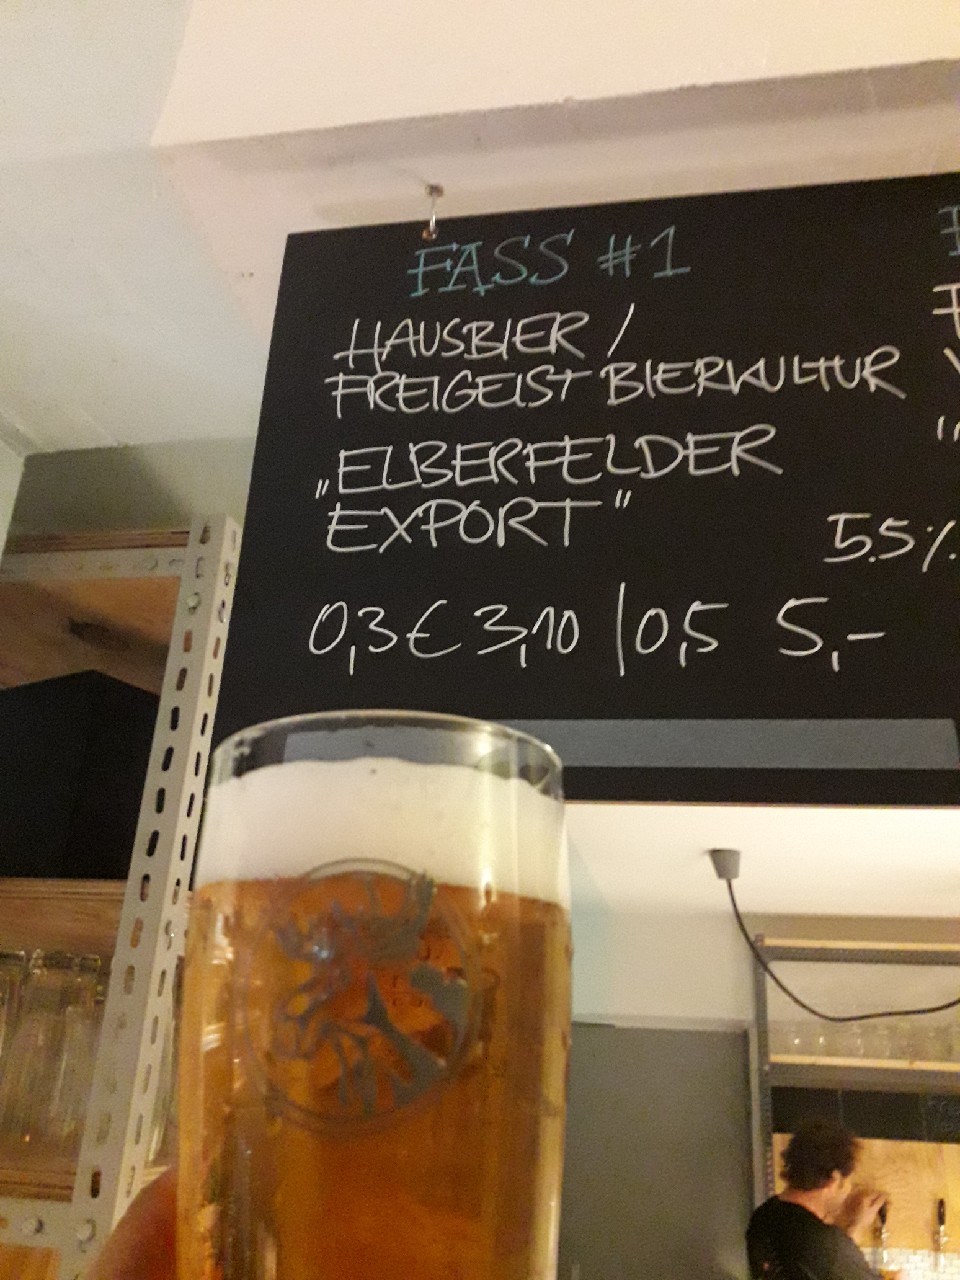 FASS #1
HAUSBIER /
FREIGEIST BIERKULTUR
„ELBERFELDER
EXPORT"
5.5%
0,3 € 3,10 | 0,5 5,-